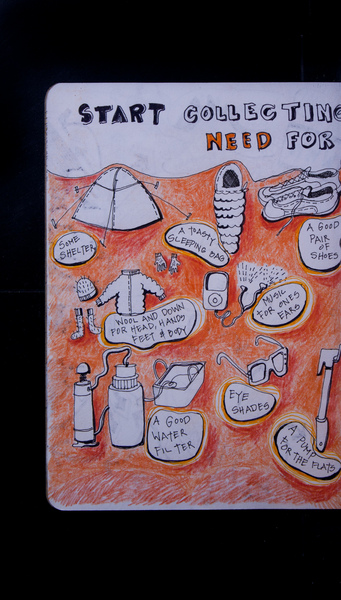 START COLLECTING
NEED FOR
SOME
SHELTER
A TOASTY
SLEEPING BAG
A GOOD
PAIR
OF
SHOES
WOOL AND DOWN
FOR HEAD, HANDS
FEET & BODY
MUSIC
FOR ONES
EARS
A GOOD
WATER
FILTER
EYE
SHADES
A PUMP
FOR THE FLATS